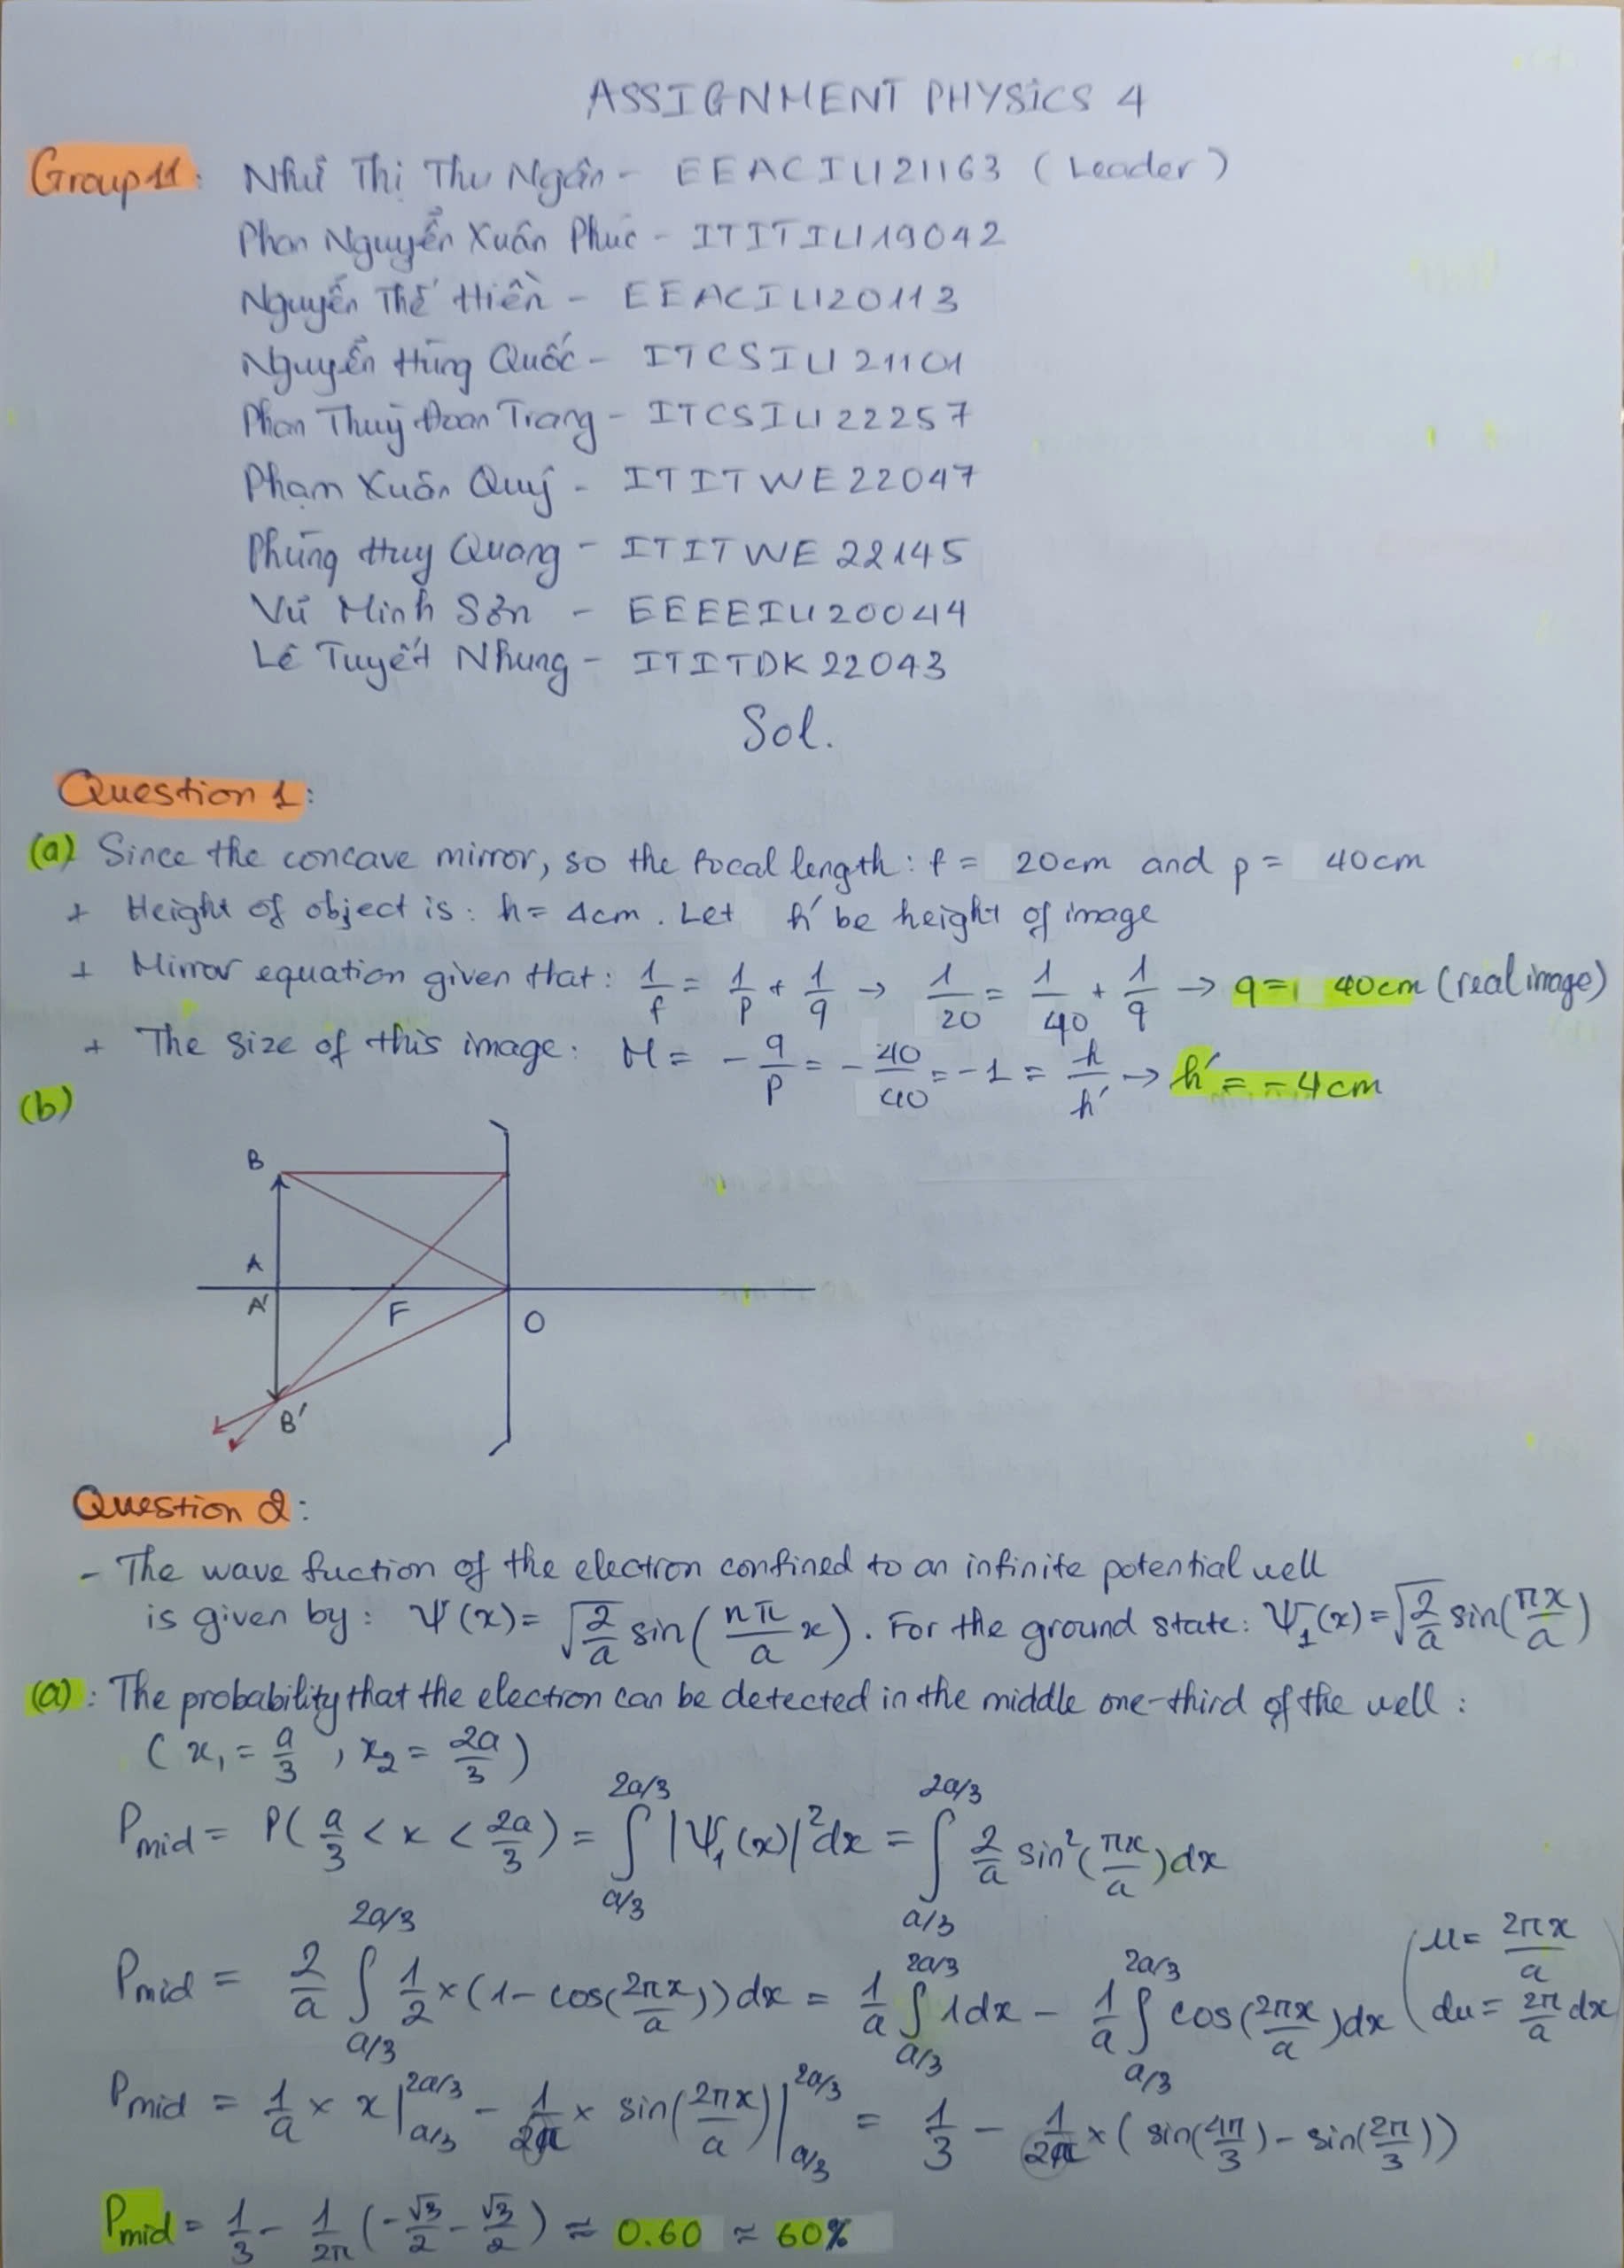 ASSIGNMENT PHYSICS 4
Group 11: Như Thị Thu Ngân - EEACIU21163 (Leader)
Phan Nguyễn Xuân Phúc - ITITIU19042
Nguyễn Thế Hiền - EEACIU20113
Nguyễn Hùng Quốc - ITCSIU21101
Phan Thuỳ Đoan Trang - ITCSIU22257
Phạm Xuân Quý - ITITWE22047
Phùng Huy Quang - ITITWE22145
Vũ Minh Sơn - EEEEIU20044
Lê Tuyết Nhung - ITITDK22043
Sol.
Question 1:
(a) Since the concave mirror, so the focal length: f = 20cm and p = 40cm
+ Height of object is: h = 4cm. Let h' be height of image
+ Mirror equation given that: 1/f = 1/p + 1/q → 1/20 = 1/40 + 1/q → q = 40cm (real image)
+ The size of this image: M = -q/p = -40/40 = -1 = h/h' → h' = -4cm
(b)
B
A
A'
F
O
B'
Question 2:
- The wave fuction of the electron confined to an infinite potential well
is given by: Ψ(x) = √(2/a) sin(nπ/a x). For the ground state: Ψ₁(x) = √(2/a) sin(πx/a)
(a): The probability that the electron can be detected in the middle one-third of the well:
(x₁ = a/3, x₂ = 2a/3)
Pmid = P(a/3 < x < 2a/3) = ∫_{a/3}^{2a/3} |Ψ₁(x)|² dx = ∫_{a/3}^{2a/3} 2/a sin²(πx/a) dx
Pmid = 2/a ∫_{a/3}^{2a/3} 1/2 × (1 - cos(2πx/a)) dx = 1/a ∫_{a/3}^{2a/3} 1dx - 1/a ∫_{a/3}^{2a/3} cos(2πx/a) dx (u = 2πx/a
du = 2π/a dx
Pmid = 1/a × x |_{a/3}^{2a/3} - 1/2π × sin(2πx/a) |_{a/3}^{2a/3} = 1/3 - 1/2π × (sin(4π/3) - sin(2π/3))
Pmid = 1/3 - 1/2π (-√3/2 - √3/2) ≈ 0.60 ≈ 60%